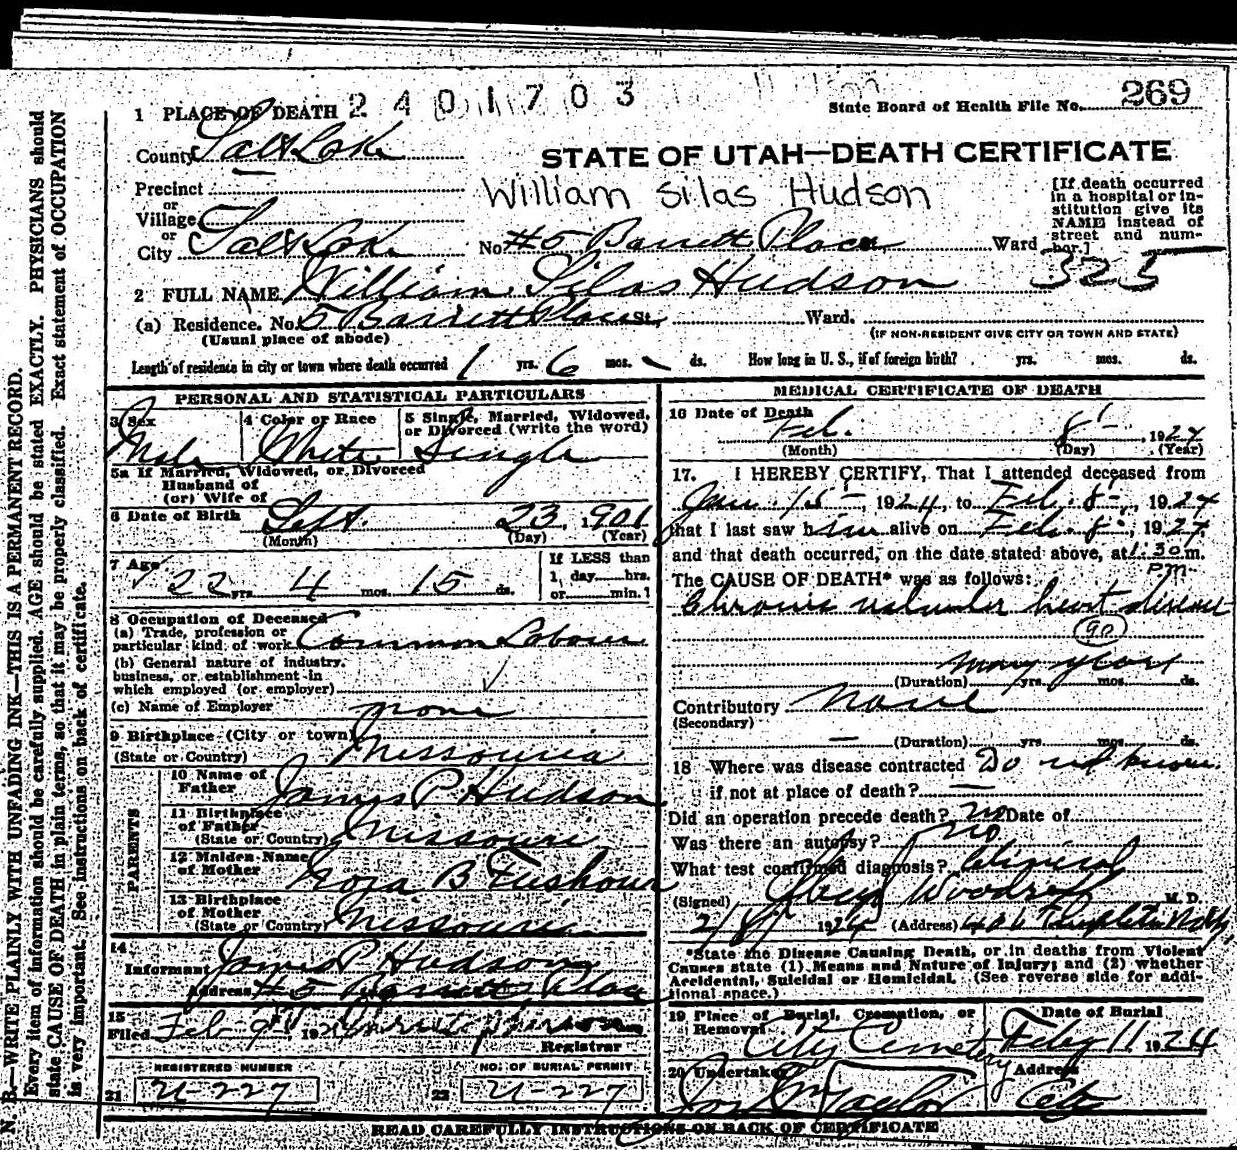 1 PLACE OF DEATH 2401703
State Board of Health File No. 269
County Salt Lake
STATE OF UTAH—DEATH CERTIFICATE
Precinct
or
Village
or
City Salt Lake
William Silas Hudson
No. #5 Barrett Place Ward
[If death occurred
in a hospital or in-
stitution give its
NAME instead of
street and num-
ber.]
325
2 FULL NAME William Silas Hudson
(a) Residence. No. 5 Barrett Place St. Ward.
(Usual place of abode)
(IF NON-RESIDENT GIVE CITY OR TOWN AND STATE)
Length of residence in city or town where death occurred 1 yrs. 6 mos. - ds. How long in U. S., if of foreign birth? yrs. mos. ds.
PERSONAL AND STATISTICAL PARTICULARS
3 Sex
Male
4 Color or Race
White
5 Single, Married, Widowed,
or Divorced (write the word)
Single
5a If Married, Widowed, or Divorced
Husband of
(or) Wife of
6 Date of Birth Sept. 23, 1901
(Month) (Day) (Year)
7 Age 22 yrs. 4 mos. 15 ds.
If LESS than
1 day hrs.
or min.?
8 Occupation of Deceased
(a) Trade, profession or
particular kind of work Common Labour
(b) General nature of industry,
business, or establishment in
which employed (or employer)
(c) Name of Employer none
9 Birthplace (City or town)
(State or Country) Missouria
PARENTS
10 Name of
Father James P Hudson
11 Birthplace
of Father
(State or Country) Missouri
12 Maiden Name
of Mother B
13 Birthplace
of Mother
(State or Country) Missouri
14
Informant James P Hudson
Address #5 Barrett Place
15
Filed Feb 9th, 1924
Registrar
REGISTERED NUMBER
21 U-227
NO. OF BURIAL PERMIT
22 U-227
MEDICAL CERTIFICATE OF DEATH
16 Date of Death
Feb. 8-, 1924
(Month) (Day) (Year)
17. I HEREBY CERTIFY, That I attended deceased from
Jan. 15-, 1924, to Feb. 8-, 1924
that I last saw him alive on Feb. 8-, 1924,
and that death occurred, on the date stated above, at 1:30 m.
P.M.
The CAUSE OF DEATH* was as follows:
Chronic valvular heart disease
90
many years
(Duration) yrs. mos. ds.
Contributory None
(Secondary)
— (Duration) yrs mos ds.
18 Where was disease contracted Do not know.
if not at place of death? —
Did an operation precede death? no Date of
Was there an autopsy? no
What test confirmed diagnosis? Clinical
(Signed) M. D.
2/8/ 1924 (Address) 406 Templeton Bldg,
*State the Disease Causing Death, or in deaths from Violent
Causes state (1) Means and Nature of Injury; and (2) whether
Accidental, Suicidal or Homicidal. (See reverse side for addi-
tional space.)
19 Place of Burial, Cremation, or
Removal City Cemetery
Date of Burial
Feby 11 1924
20 Undertaker Taylor
Address
City
READ CAREFULLY INSTRUCTIONS ON BACK OF CERTIFICATE
N. B.—WRITE PLAINLY WITH UNFADING INK—THIS IS A PERMANENT RECORD.
Every item of information should be carefully supplied. AGE should be stated EXACTLY. PHYSICIANS should
state CAUSE OF DEATH in plain terms, so that it may be properly classified. Exact statement of OCCUPATION
is very important. See instructions on back of certificate.